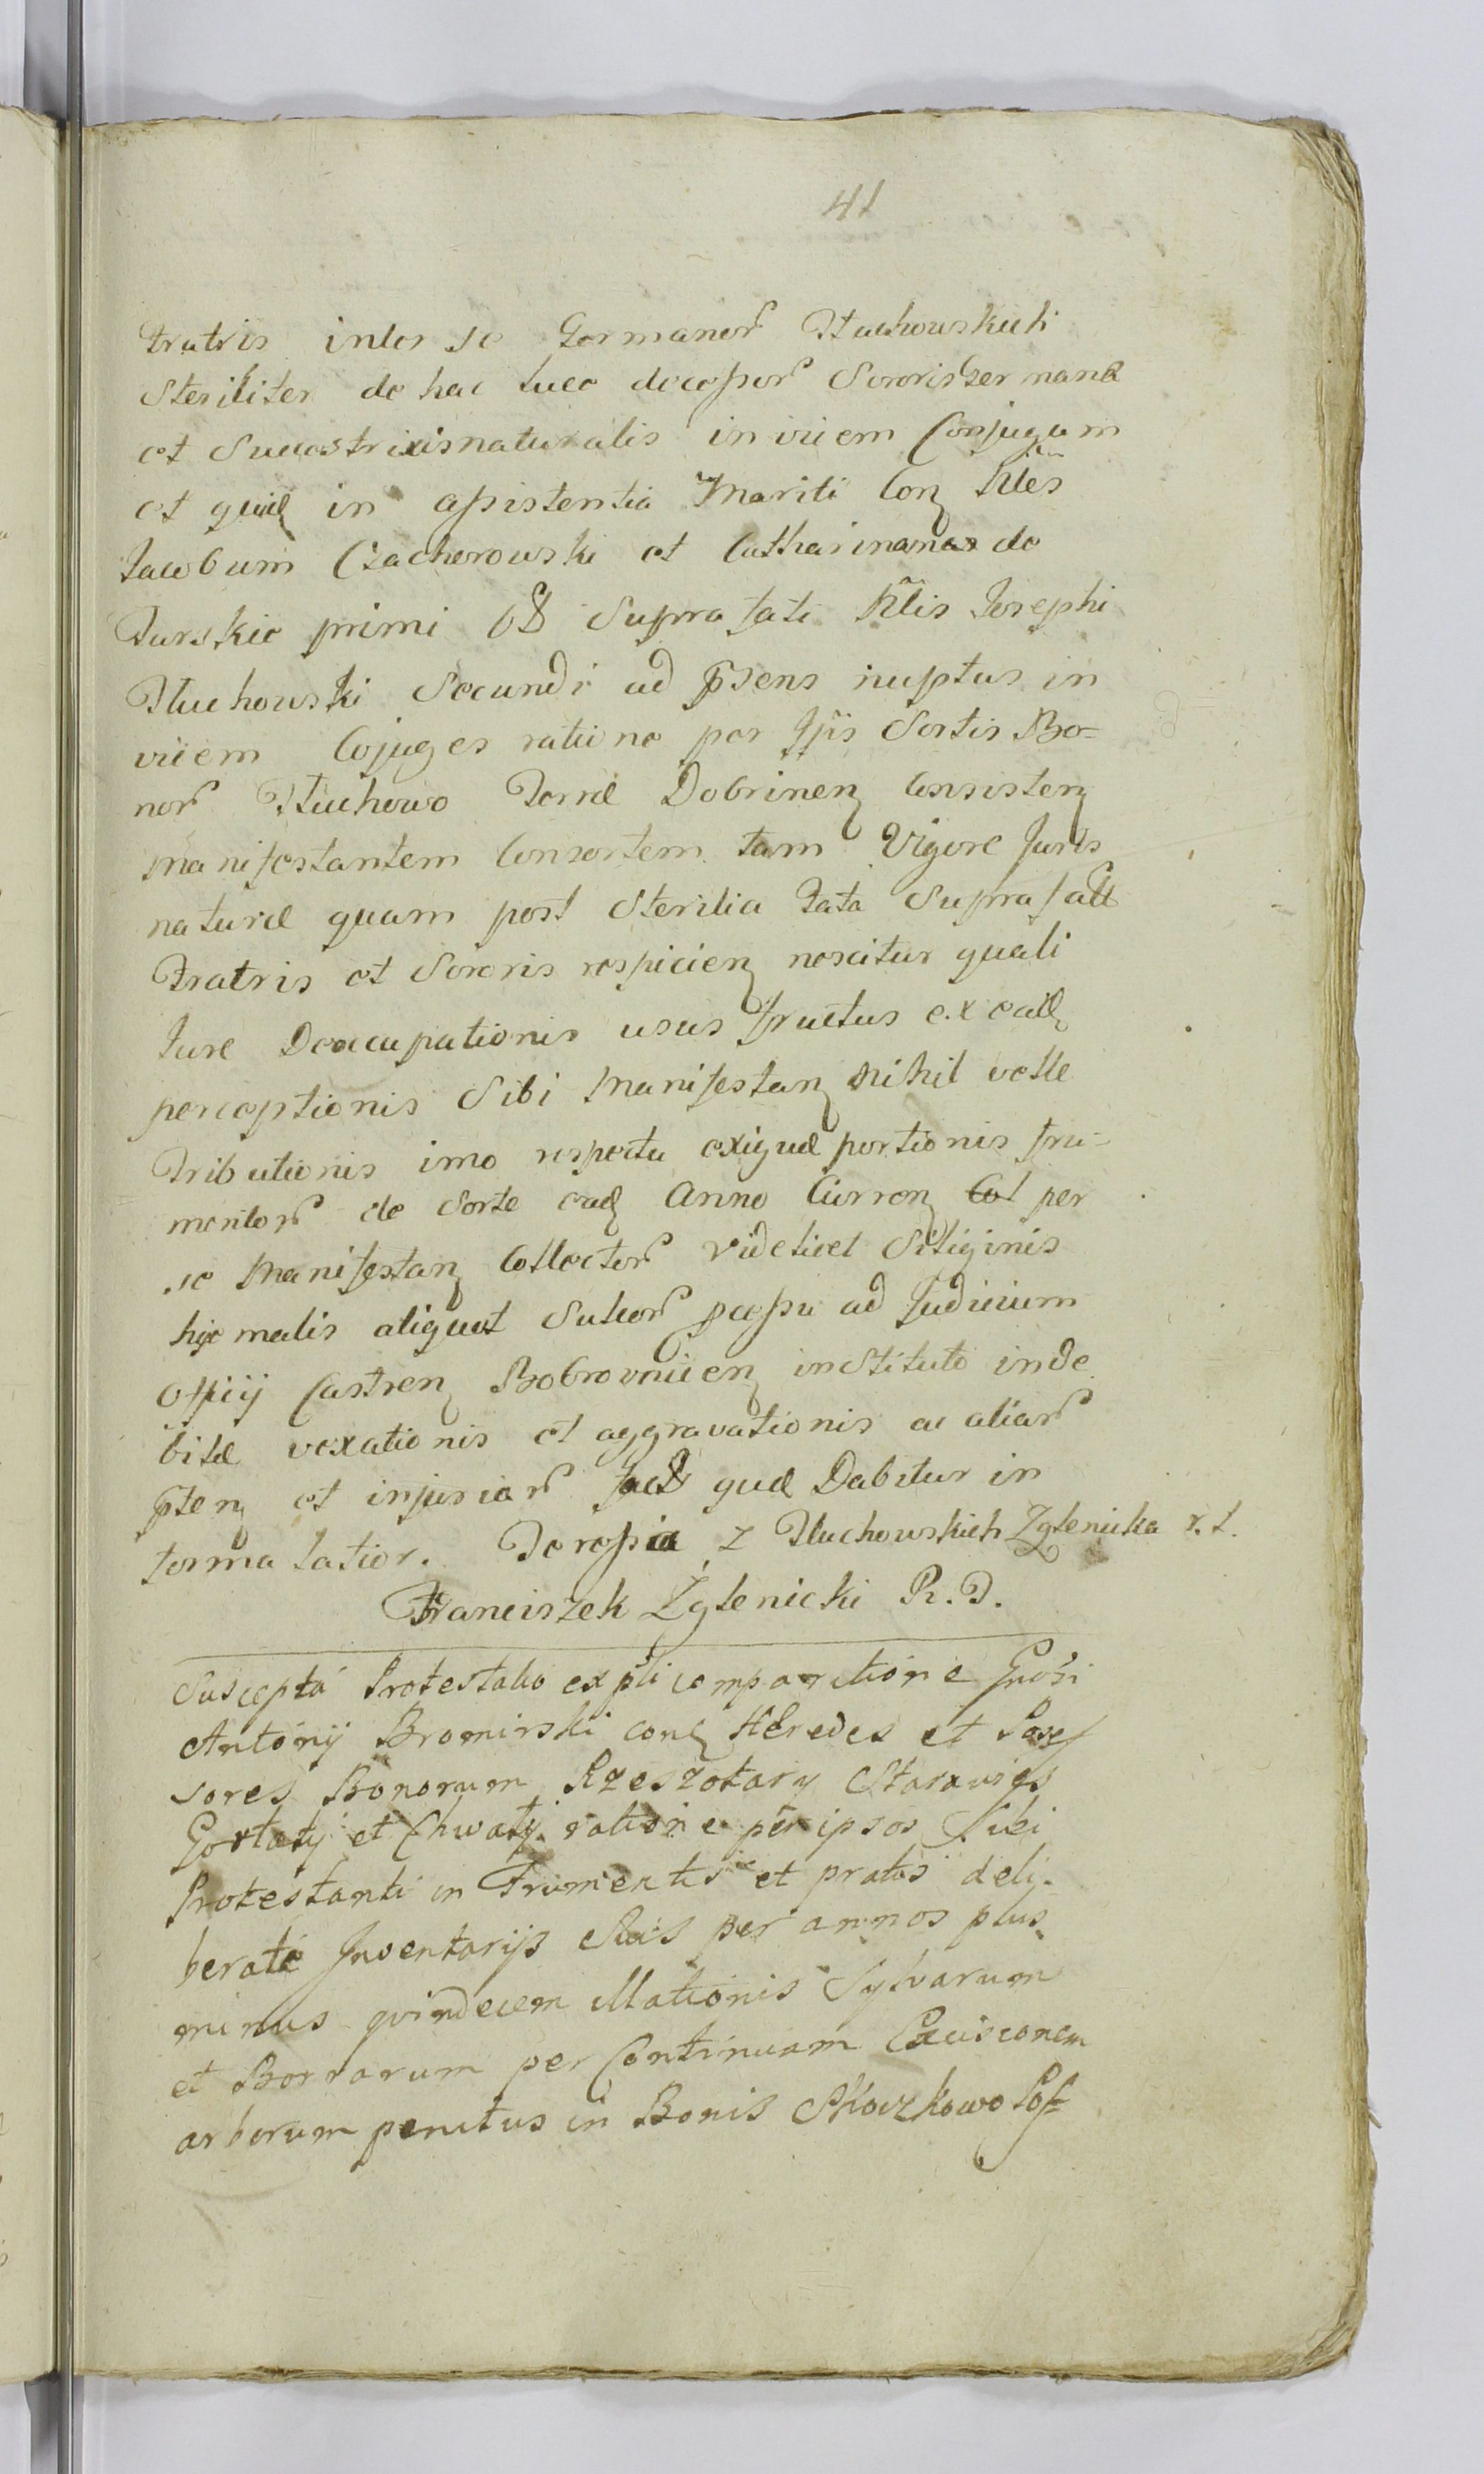 41
Fratris inter se Germanor Tłuchowskich
Steriliter de hac luce decessor Sororis Germanæ
et Succestricis naturalis invicem Conjugum
et quid in assistentia Mariti Con Nles
Jacobum Czacherowski et Catharinam de
Turskie primi Supra fati Nlis Josephi
Tłuchowski Secundi ad psens nuptus in
vicem Cojuges ratione per Ipis Sortis Bo=
nor Tłuchowo Terræ Dobrinen Consisten
manifestantem Consortem tam Vigore Juris
naturæ quam post Sterilia Fata Suprafatt
Fratris et Sororis respicien noscitur quali
Jure Deoccupationis usus fructus ex ead
perceptionis Sibi Manifestan nihil velle
Tributionis imo respectu exiguæ portionis fru-
mentor de Sorte ead Anno Curren per
se Manifestan Collector videlicet Siliginis
hyemalis aliquot Sulcor ad Judicium
Officij Castren Bobrovnicen instituto inde
bitæ vexationis et aggravationis ac aliar
pten et injuriar fact quæ Dabitur in
forma latior. Teressia z Tłuchowskich Zglenicka r. t.
Franciszek Zglenicki R. D.
Suscepta Protestatio ex pti comparitione Gnosi
Antonij Bromirski con Hæredes et Posses
sores Bonorum Rzeszotary Starawies
Gortaty et Chwały ratione per ipsos Sibi
Protestanti in Frumentis et pratis deli-
berate Inventarijs Suis per annos plus
minus quindecem illationis Sylvarum
et Borrarum per Continuam Excisionem
arborum penitus in Bonis Skoczkowo Poss